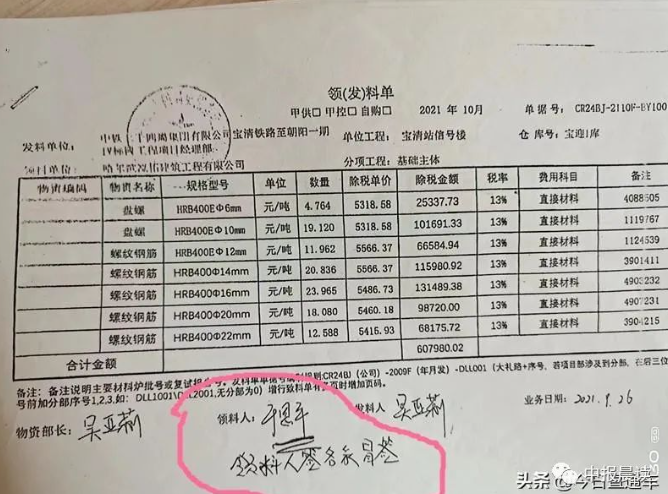 领(发)料单
甲供□ 甲控□ 自购□ 2021 年 10月 单据号: CR24BJ-2110F-BY100
发料单位: 中铁二十四局集团有限公司宝清铁路至朝阳一期 单位工程: 宝清站信号楼 仓库号: 宝迎1库
项目经理部
项目单位: 建筑工程有限公司 分项工程: 基础主体
物资编码 物资名称 规格型号 单位 数量 除税单价 除税金额 税率 费用科目 备注
盘螺 HRB400EΦ6mm 元/吨 4.764 5318.58 25337.73 13% 直接材料 4088505
盘螺 HRB400EΦ10mm 元/吨 19.120 5318.58 101691.33 13% 直接材料 1119767
螺纹钢筋 HRB400EΦ12mm 元/吨 11.962 5566.37 66584.94 13% 直接材料 1124539
螺纹钢筋 HRB400Φ14mm 元/吨 20.836 5566.37 115980.92 13% 直接材料 3901411
螺纹钢筋 HRB400Φ16mm 元/吨 23.965 5486.73 131489.38 13% 直接材料 4903232
螺纹钢筋 HRB400Φ20mm 元/吨 18.080 5460.18 98720.00 13% 直接材料 4907231
螺纹钢筋 HRB400Φ22mm 元/吨 12.588 5416.93 68175.72 13% 直接材料 3904215
合计金额 607980.02
备注: 备注说明主要材料炉批号或复试报告号, 发料单单据号编制原则:CR24BJ (公司) -2009F (年月发) -DLL001 (大礼路+序号, 若项目部涉及到分部, 在后
号前加分部序号1,2,3,如: DLL1001\DLL2001,无分部为0) 增行致料单有多页时增加页码.
物资部长: 吴亚莉 领料人: 发料人 吴亚莉 业务日期: 2021.9.26
领料人签名系冒签
中报晨读
头条 @今日普通车